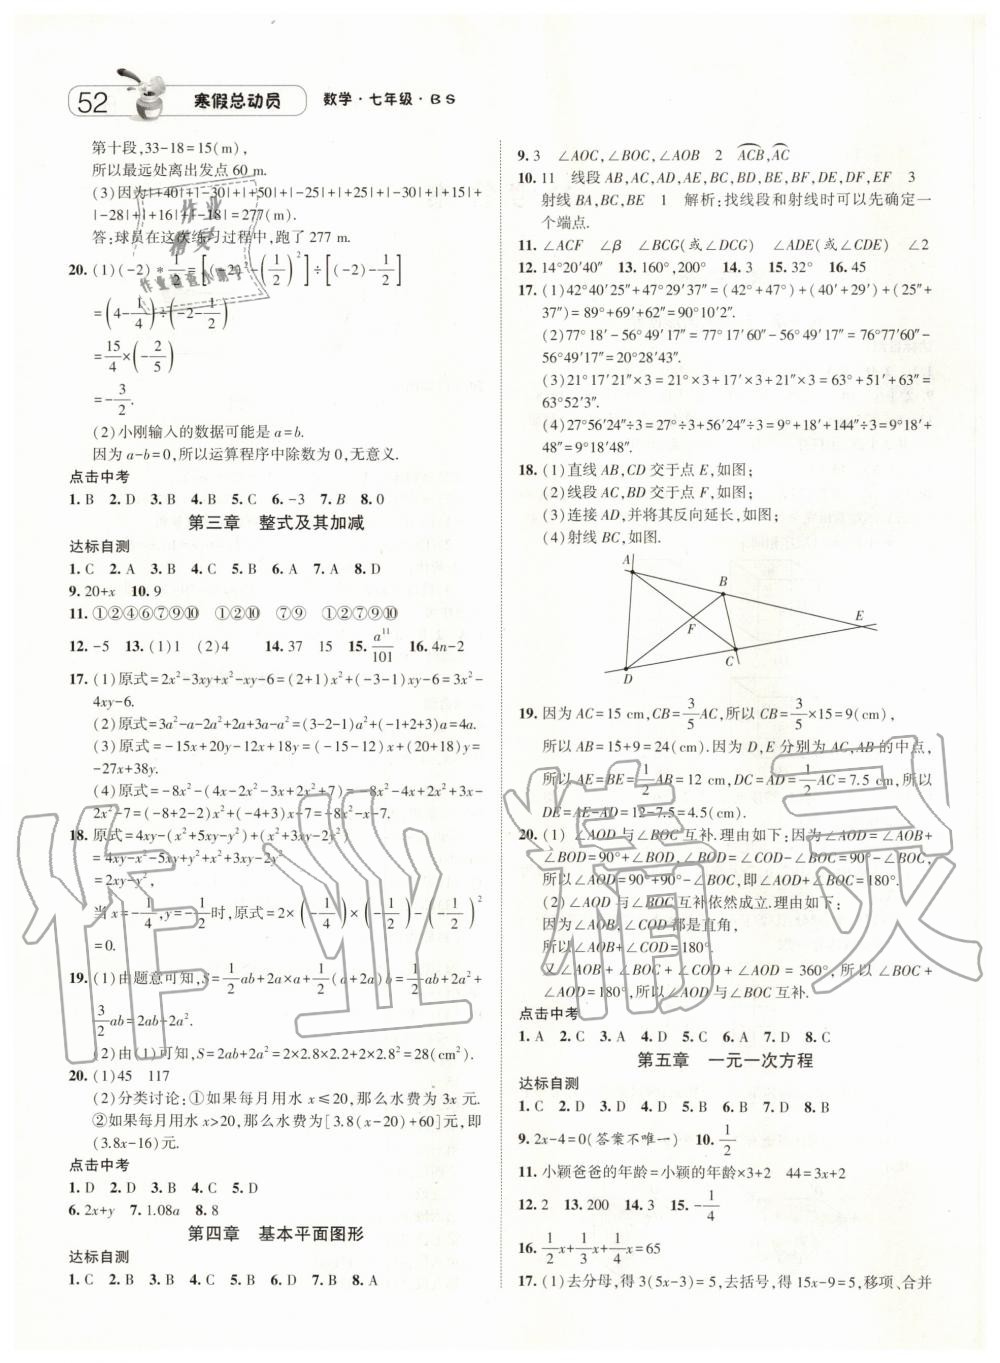 52 寒假总动员 数学·七年级·BS
第十段,33-18=15(m),
所以最远处离出发点 60 m.
(3)因为|+40|+|-30|+|+50|+|-25|+|+25|+|-30|+|+15|+
|-28|+|+16|+|-18|=277(m).
答:球员在这次练习过程中,跑了 277 m.
20. (1)(-2) * 1/2 = [(-2)²-(1/2)²]÷[(-2)-1/2]
=(4-1/4)÷(-2-1/2)
=15/4×(-2/5)
=-3/2.
(2)小刚输入的数据可能是 a=b.
因为 a-b=0,所以运算程序中除数为 0,无意义.
点击中考
1. B 2. D 3. B 4. B 5. C 6. -3 7. B 8. 0
第三章 整式及其加减
达标自测
1. C 2. A 3. B 4. C 5. B 6. A 7. A 8. D
9. 20+x 10. 9
11. ①②④⑥⑦⑨⑩ ①②⑩ ⑦⑨ ①②④⑥⑦⑨⑩
12. -5 13. (1)1 (2)4 14. 37 15 15. a¹¹/101 16. 4n-2
17. (1)原式=2x²-3xy+x²-xy-6=(2+1)x²+(-3-1)xy-6=3x²-
4xy-6.
(2)原式=3a²-a-2a²+2a+3a-a²=(3-2-1)a²+(-1+2+3)a=4a.
(3)原式=-15x+20y-12x+18y=(-15-12)x+(20+18)y=
-27x+38y.
(4)原式=-8x²-(4x-2x²-3x+2x²+7)=-8x²-4x+2x²+3x-
2x²-7=(-8+2-2)x²+(-4+3)x-7=-8x²-x-7.
18. 原式=4xy-(x²+5xy-y²)+(x²+3xy-2y²)
=4xy-x²-5xy+y²+x²+3xy-2y²
=2xy-y²,
当 x=-1/4,y=-1/2时,原式=2×(-1/4)×(-1/2)-(-1/2)²
=0.
19. (1)由题意可知,S=1/2ab+2a×a+1/2(a+2a)b=1/2ab+2a²+
3/2ab=2ab+2a².
(2)由(1)可知,S=2ab+2a²=2×2.8×2.2+2×2.8²=28(cm²).
20. (1)45 117
(2)分类讨论:①如果每月用水 x≤20,那么水费为 3x 元.
②如果每月用水 x>20,那么水费为[3.8(x-20)+60]元,即
(3.8x-16)元.
点击中考
1. D 2. D 3. B 4. C 5. D
6. 2x+y 7. 1.08a 8. 8
第四章 基本平面图形
达标自测
1. C 2. B 3. B 4. C 5. C 6. B 7. B 8. A
9. 3 ∠AOC,∠BOC,∠AOB 2 ACB,AC
10. 11 线段 AB,AC,AD,AE,BC,BD,BE,BF,DE,DF,EF 3
射线 BA,BC,BE 1 解析:找线段和射线时可以先确定一
个端点.
11. ∠ACF ∠β ∠BCG(或∠DCG) ∠ADE(或∠CDE) ∠2
12. 14°20′40″ 13. 160°,200° 14. 3 15. 32° 16. 45
17. (1)42°40′25″+47°29′37″=(42°+47°)+(40′+29′)+(25″+
37″)=89°+69′+62″=90°10′2″.
(2)77°18′-56°49′17″=77°17′60″-56°49′17″=76°77′60″-
56°49′17″=20°28′43″.
(3)21°17′21″×3=21°×3+17′×3+21″×3=63°+51′+63″=
63°52′3″.
(4)27°56′24″÷3=27°÷3+56′24″÷3=9°+18′+144″÷3=9°18′+
48″=9°18′48″.
18. (1)直线 AB,CD 交于点 E,如图;
(2)线段 AC,BD 交于点 F,如图;
(3)连接 AD,并将其反向延长,如图;
(4)射线 BC,如图.
A
B
E
F
C
D
19. 因为 AC=15 cm,CB=3/5AC,所以 CB=3/5×15=9(cm),
所以 AB=15+9=24(cm).因为 D,E 分别为 AC,AB 的中点,
所以 AE=BE=1/2AB=12 cm,DC=AD=1/2AC=7.5 cm,所以
DE=AE-AD=12-7.5=4.5(cm).
20. (1) ∠AOD 与∠BOC 互补.理由如下:因为∠AOD=∠AOB+
∠BOD=90°+∠BOD,∠BOC=∠COD-∠BOD=90°-∠BOD,
所以∠AOD+∠BOC=180°.
(2)∠AOD 与∠BOC 互补依然成立.理由如下:
因为∠AOB,∠COD 都是直角,
所以∠AOB+∠COD=180°.
又∠AOB+∠BOC+∠COD+∠AOD=360°,所以∠BOC+
∠AOD=180°,所以∠AOD 与∠BOC 互补.
点击中考
1. A 2. C 3. A 4. D 5. C 6. A 7. D 8. C
第五章 一元一次方程
达标自测
1. C 2. D 3. A 4. D 5. B 6. C 7. D 8. B
9. 2x-4=0(答案不唯一) 10. 1/2
11. 小颖爸爸的年龄=小颖的年龄×3+2 44=3x+2
12. 2 13. 200 14. 3 15. -1/4
16. 1/2x+1/3x+1/4x=65
17. (1)去分母,得 3(5x-3)=5,去括号,得 15x-9=5,移项、合并
作业精灵